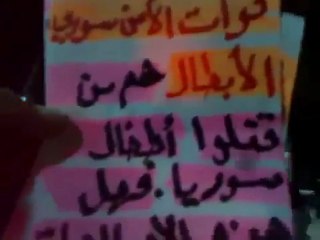 قوات الأمن سوريا
الأبطال هم من
قتلوا أطفال
سوريا. فهل
هذه الإ